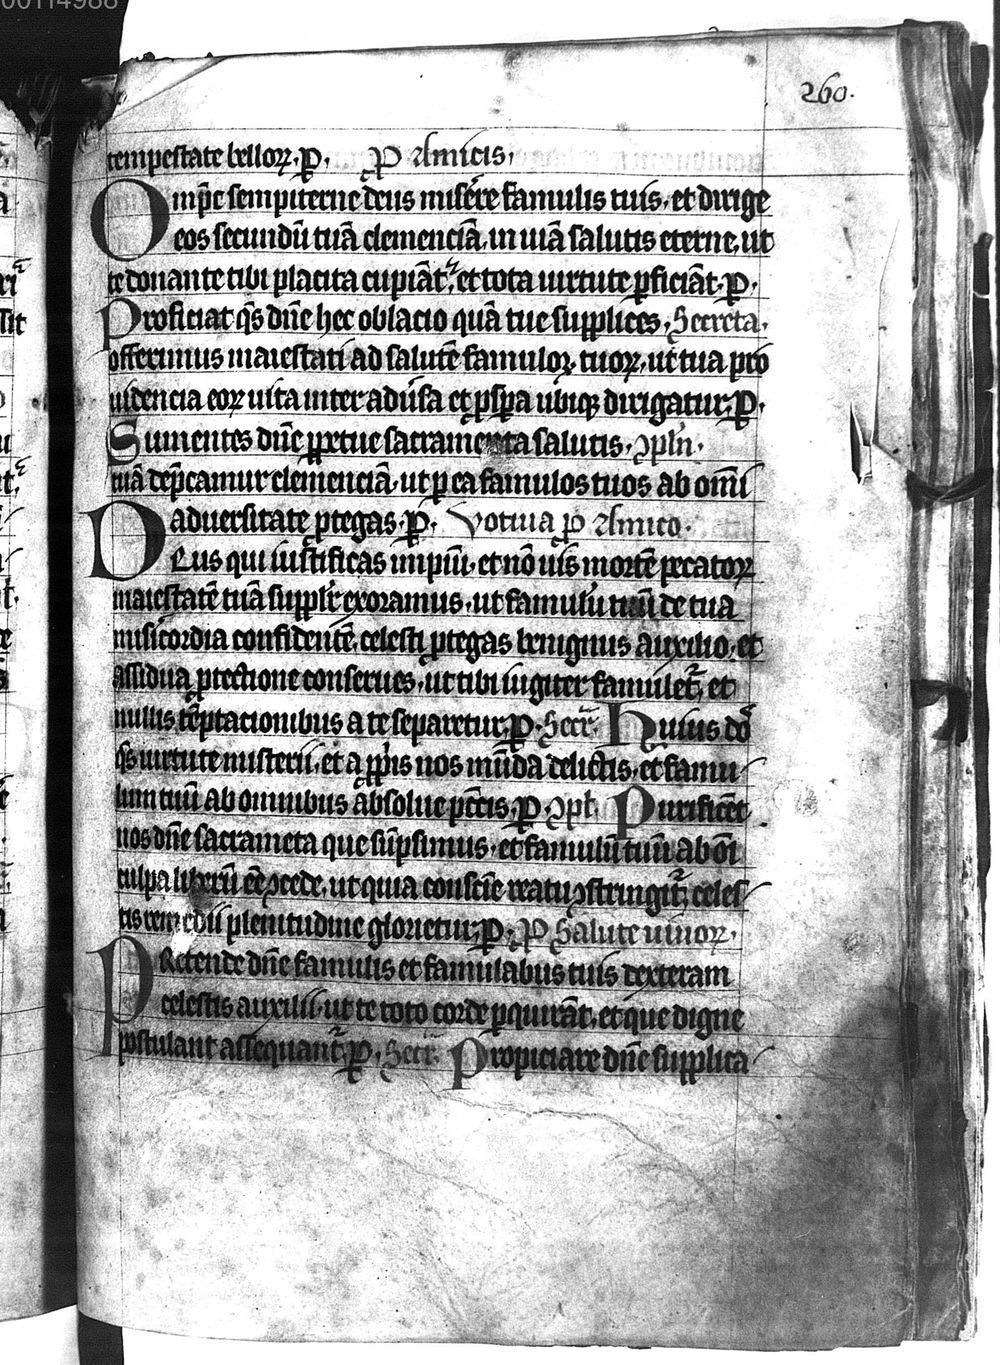 00114988
260.
tempestate belloꝝ. ꝑ. ꝑ Amicis.
Omp̄c sempiterne deus miser̄e famulis tuis. et dirige
eos secundū tuā clemenciā. in uiā salutis eterne. ut
te donante tibi placita cupiāt. et tota uirtute ꝑficiāt. ꝑ.
Proficiat q̄s dn̄e hec oblacio quā tue supplices. Secreta.
offerimus maiestati ad salutē famuloꝝ tuoꝝ. ut tua pro
uidencia eoꝝ uita inter adūsa et ꝓspa ubiqꝫ dirigatur. ꝑ.
Sumentes dn̄e ꝑpetue sacramenta salutis. ꝯpln̄.
tuā dep̄camur clemenciā. ut ꝑ ea famulos tuos ab omī
aduersitate ꝓtegas. ꝑ. Votiua ꝓ Amico.
Deus qui iustificas impiū. et nō uis mortē peccatoꝝ
maiestatē tuā supplr̄ exoramus. ut famulū tuū de tua
mis̄icordia confidentē. celesti ꝓtegas benignus auxilio. et
assidua ꝓtectione conserues. ut tibi iugiter famulet᷑. et
nullis tēptacionibus a te separetur. ꝑ. Secr̄. Huius dō
q̄s uirtute misterii. et a ꝓpriis nos mūda delictis. et famu
lum tuū ab omnibus absolue pctīs. ꝑ. ꝯpl. Purificēt
nos dn̄e sacrameta que sūpsimus. et famulū tuū ab oī
culpa liberū eē ꝯcede. ut qui a conscīe reatu ꝯstringit᷑. celes
tis remedii plenitudine glorietur. ꝑ. ꝑ Salute uiuoꝝ.
PRetende dn̄e famulis et famulabus tuis dexteram
celestis auxilii. ut te toto corde ꝑquirāt. et que digne
postulant assequant᷑. ꝑ. Secr̄. Propiciare dn̄e supplica